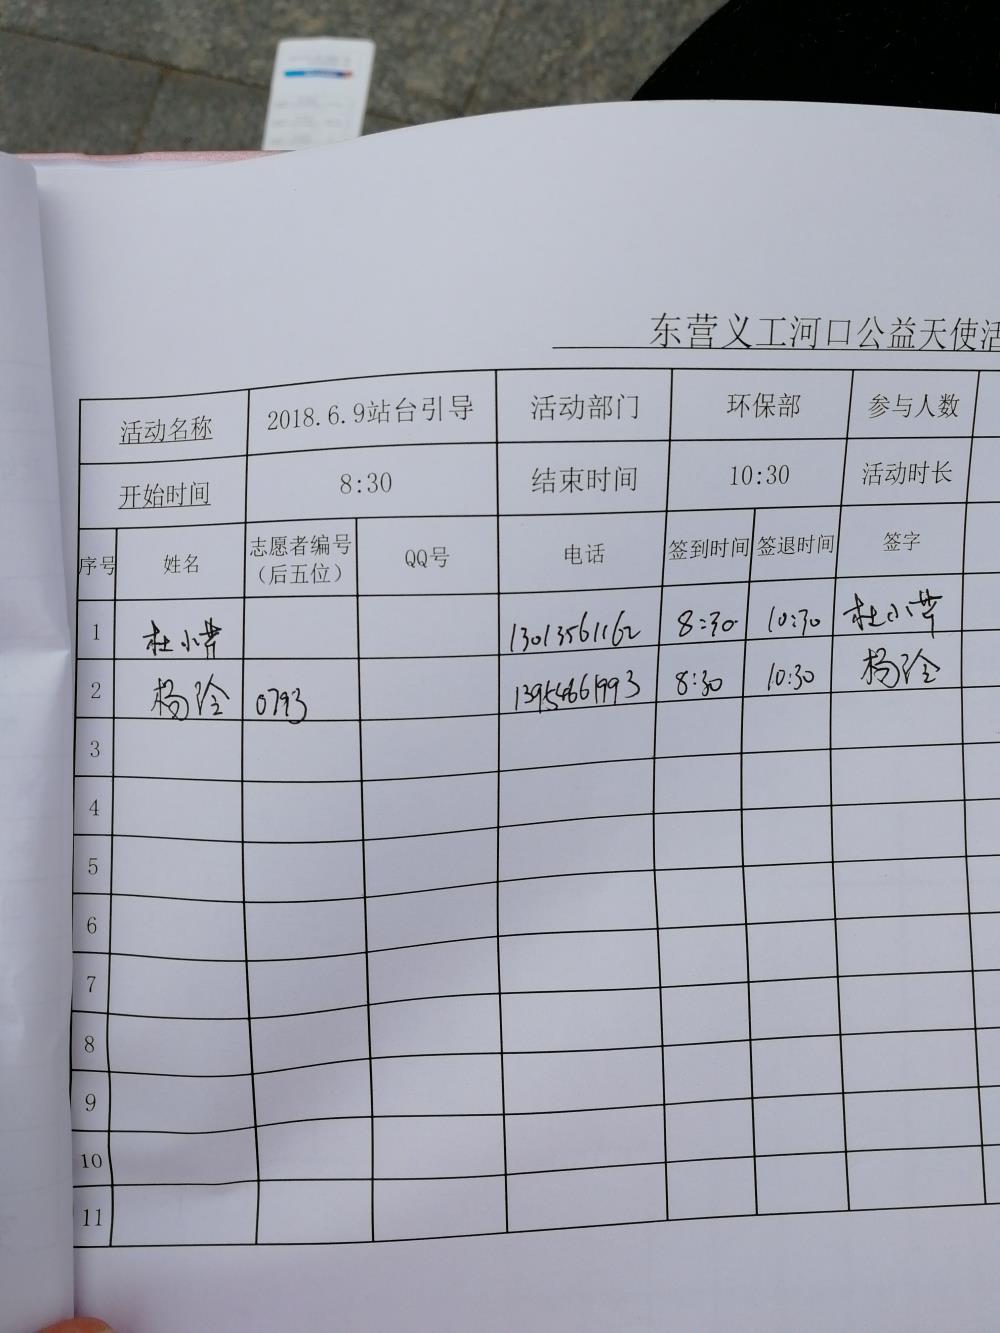 东营义工河口公益天使活
活动名称 2018.6.9站台引导 活动部门 环保部 参与人数
开始时间 8:30 结束时间 10:30 活动时长
序号 姓名 志愿者编号（后五位） QQ号 电话 签到时间 签退时间 签字
1 杜小芹 13013561162 8:30 10:30 杜小芹
2 杨玲 0793 13954661993 8:30 10:30 杨玲
3
4
5
6
7
8
9
10
11